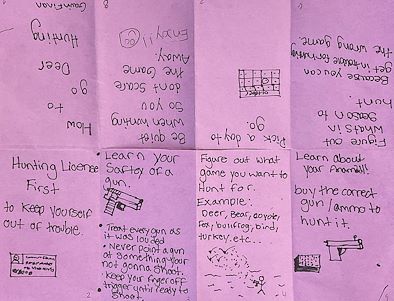 How
to
go
Deer
Hunting
Hunting License
First
to keep yourself
out of trouble.
Learn your
Saftey of a
gun.
• Treat every gun as
it was louded
• Never point a gun
at something your
not gonna shoot.
• keep your finger off
trigger until ready to
shoot.
2
Figure out what
game you want to
Hunt for.
Example:
Deer, Bear, coyote,
Fox, bullfrog, bird,
turkey. etc...
Learn about
your
buy the correct
gun / ammo to
hunt it.
Figure out
whats in
season to
hunt.
Because you can
get in trouble for hunting
the wrong game.
Pick a day to
go.
Be quiet
when hunting
so you
dont scare
the Game
Away.
Enjoy!!